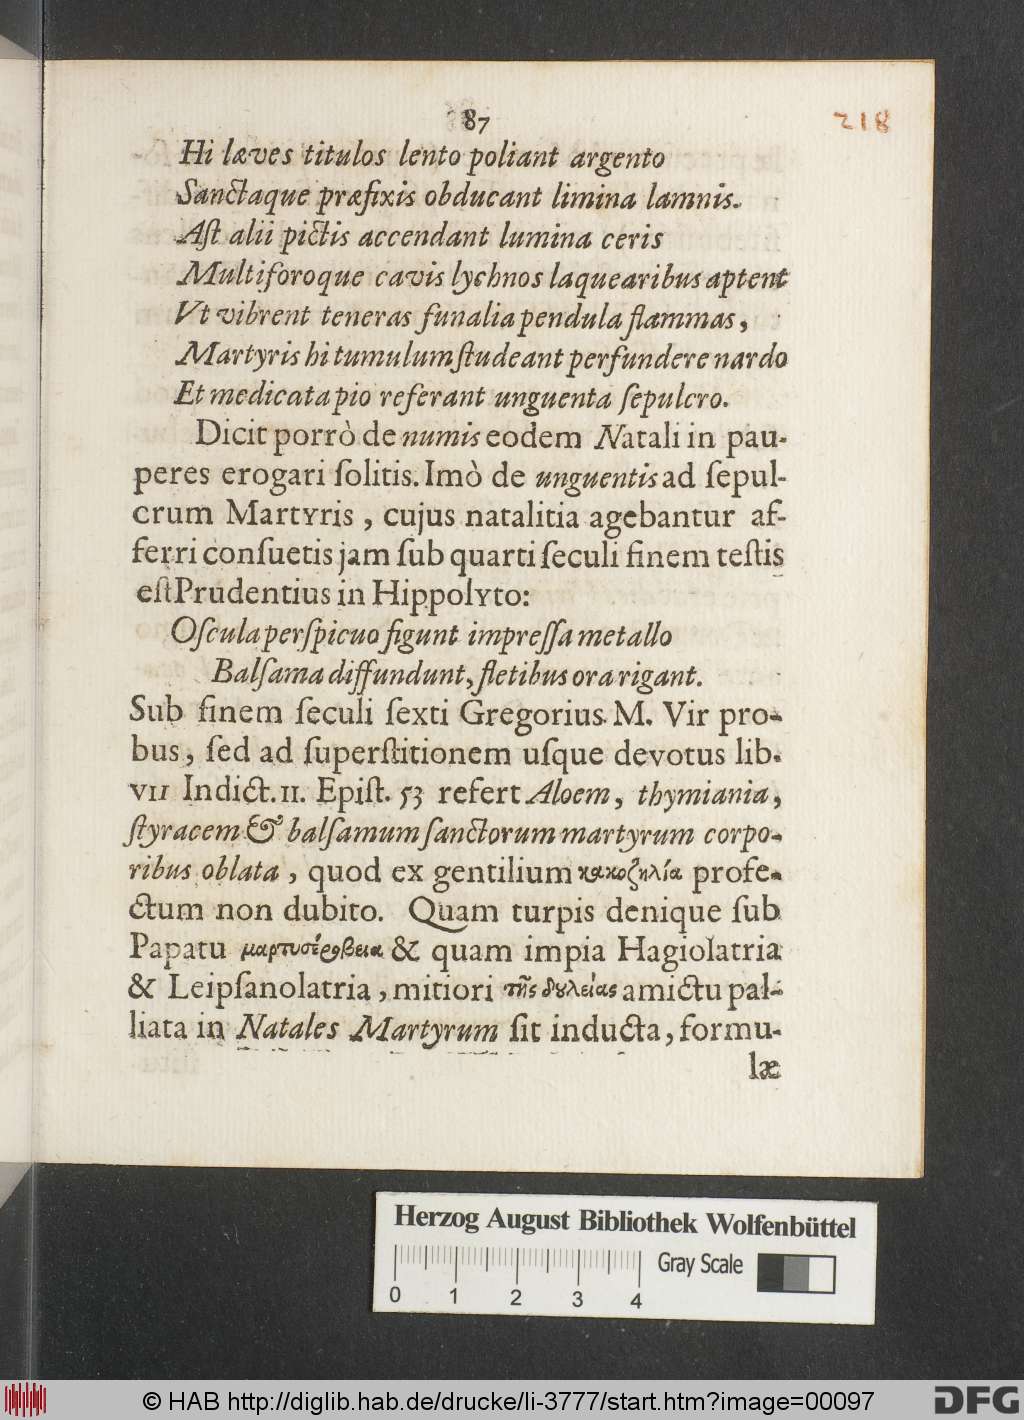 87
218
Hi læves titulos lento poliant argento
Sanctaque præfixis obducant limina lamnis.
Aſt alii pictis accendant lumina ceris
Multiforoque cavis lychnos laquearibus aptent
Vt vibrent teneras funalia pendula flammas,
Martyris hi tumulum ſtudeant perfundere nardo
Et medicata pio referant unguenta ſepulcro.
Dicit porrò de numis eodem Natali in pau-
peres erogari ſolitis. Imò de unguentis ad ſepul-
crum Martyris, cujus natalitia agebantur af-
ferri conſuetis jam ſub quarti ſeculi finem teſtis
eſt Prudentius in Hippolyto:
Oſcula perſpicuo figunt impreſſa metallo
Balſama diffundunt, fletibus ora rigant.
Sub finem ſeculi ſexti Gregorius M. Vir pro-
bus, ſed ad superſtitionem uſque devotus lib.
VII Indict. II. Epiſt. 53 refert Aloem, thymiania,
ſtyracem & balſamum ſanctorum martyrum corpo-
ribus oblata, quod ex gentilium κακοζηλία profe-
ctum non dubito. Quam turpis denique ſub
Papatu μαρτυσέροβεια & quam impia Hagiolatria
& Leipſanolatria, mitiori τῆς δȣλείας amictu pal-
liata in Natales Martyrum ſit inducta, formu-
læ
Herzog August Bibliothek Wolfenbüttel
Gray Scale
0 1 2 3 4
© HAB http://diglib.hab.de/drucke/li-3777/start.htm?image=00097
DFG